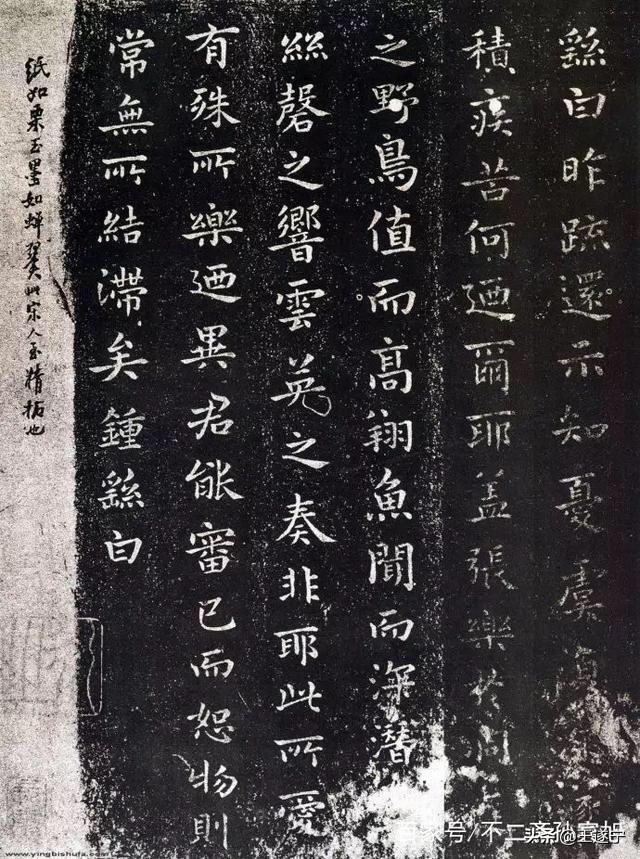 繇白昨疏還示知憂虞復深遂
積疾苦何迺爾耶盖張樂於洞
之野鳥值而高翔魚聞而深潛
絲磬之響雲英之奏非耶此所愛
有殊所樂迺異君能審己而恕物則
常無所結滯矣鍾繇白
紙如栗玉墨如蟬翼此宋人至精拓也
www.yingbishufa.com